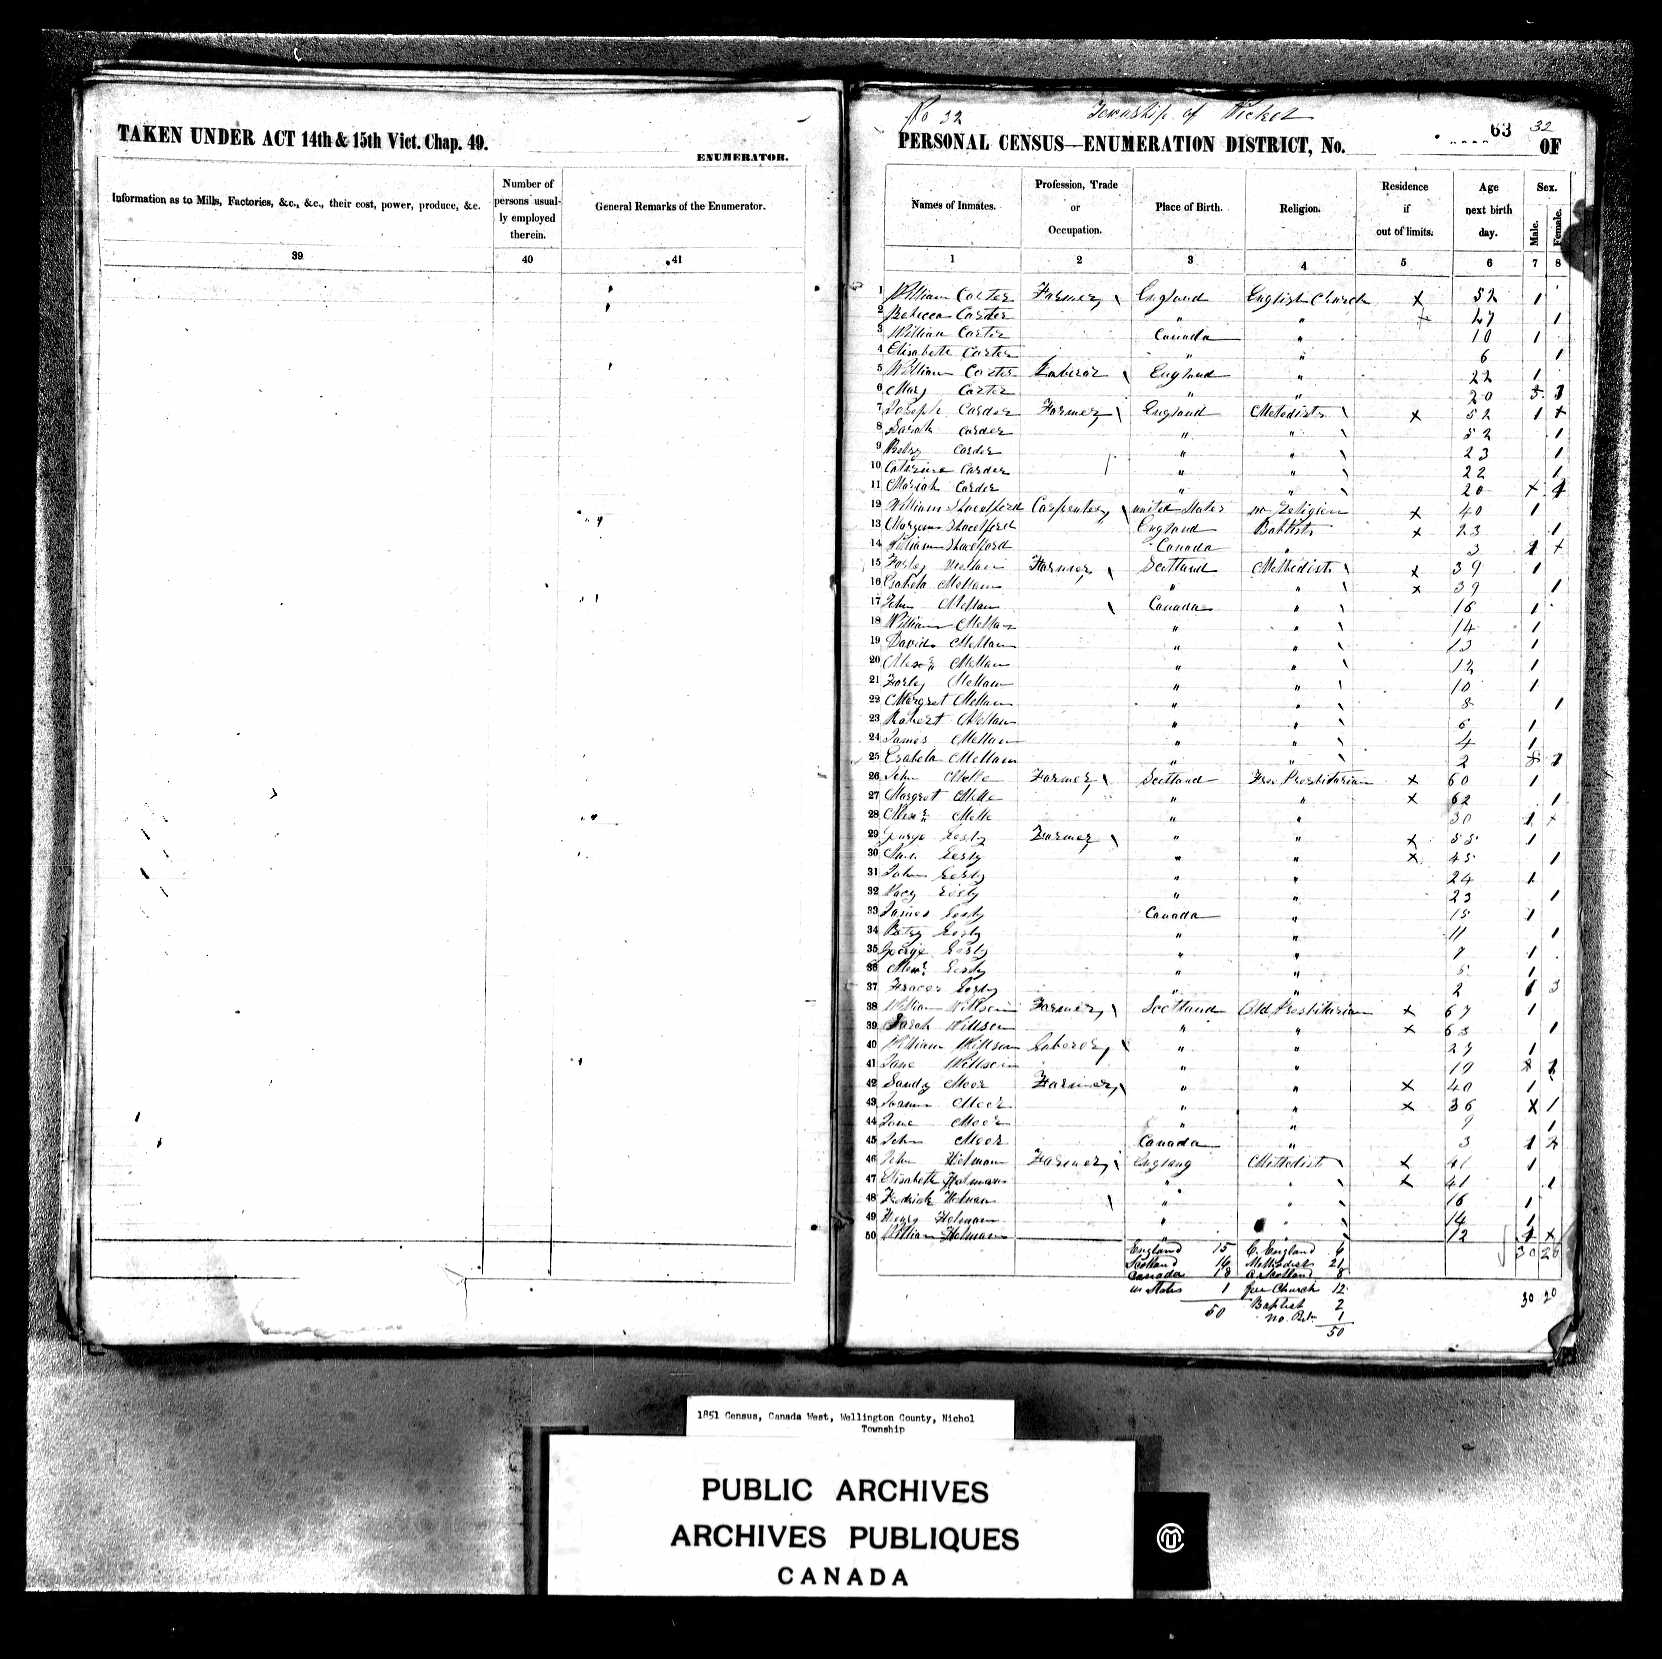 TAKEN UNDER ACT 14th & 15th Vict. Chap. 49.
ENUMERATOR.
Information as to Mills, Factories, &c., &c., their cost, power, produce, &c.
Number of persons usually employed therein.
General Remarks of the Enumerator.
39 40 41
No 32 Township of Nichol
63 32
PERSONAL CENSUS—ENUMERATION DISTRICT, No. OF
Names of Inmates. Profession, Trade or Occupation. Place of Birth. Religion. Residence if out of limits. Age next birth day. Sex. Male. Female.
1 2 3 4 5 6 7 8
1 William Carter Farmer England English Church x 52 1
2 Rebecca Carter " " x 47 1
3 William Carter Canada " 10 1
4 Elisabeth Carter " " 6 1
5 William Carter Laberor England " 22 1
6 Mary Carter " " 20
7 Joseph Carder Farmer England Methodist x 52 1 x
8 Sarah Carder " " 52 1
9 Carder " " 23 1
10 Catarine Carder " " 22 1
11 Mariah Carder " " 20 x
12 William Shacelford Carpenter united States no Religion x 40 1
13 Shacelford England Babtist x 23 1
14 William Shacelford Canada " 3 x
15 Farley Farmer Scotland Methodist x 39 1
16 Esabela McMan " " x 39 1
17 John McMan Canada " 16 1
18 William McMan " " 14 1
19 David McMan " " 13 1
20 Alexr McMan " " 12 1
21 Farley McMan " " 10 1
22 Margret McMan " " 8 1
23 Robert McMan " " 6 1
24 James McMan " " 4 1
25 Esabela McMan " " 2
26 John Farmer Scotland Free Presbitarian x 60 1
27 Margret " " x 62 1
28 Alexr " " 30 x
29 George Farmer " " x 55 1
30 " " x 45 1
31 John " " 24 1
32 " " 23 1
33 James Canada " 15 1
34 Betsy " " 11 1
35 George " " 7 1
36 Alexr " " 5 1
37 " " 2
38 William Willson Farmer Scotland Old Presbitarian x 67 1
39 Sarah Willson " " x 63 1
40 William Willson Laberor " " 27 1
41 Jane Willson " " 19
42 Sandy Moor Farmer " " x 40 1
43 Moor " " x 36 x 1
44 Jane Moor " " 9 1
45 John Moor Canada " 3
46 John Holman Farmer England Methodist x 41 1
47 Elisabeth Holman " " x 41 1
48 Fredrick Holman " " 16 1
49 Henry Holman " " 14 1
50 William Holman " " 12 x
England 15 C. England 6 30 20
Scotland 16 Methodist 21
Canada 18 C Scotland 8
u States 1 free Church 12 30 20
50 Baptist 2
no. Reln 1
50
1851 Census, Canada West, Wellington County, Nichol
Township
PUBLIC ARCHIVES
ARCHIVES PUBLIQUES
CANADA